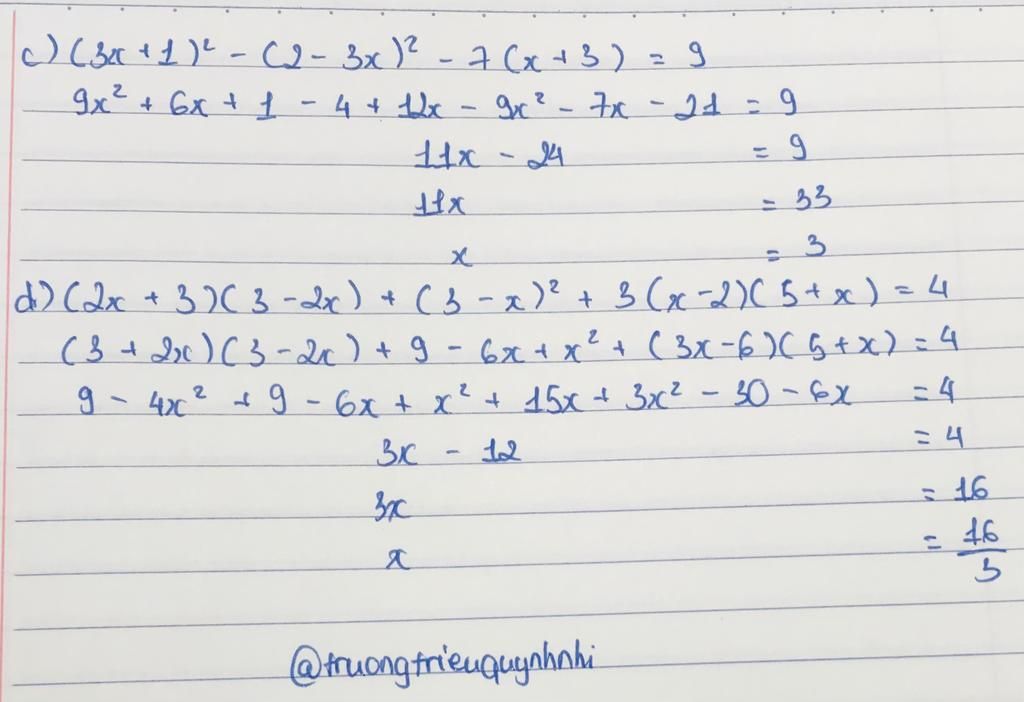 c) (3x + 1)² - (2 - 3x)² - 7(x + 3) = 9
9x² + 6x + 1 - 4 + 12x - 9x² - 7x - 21 = 9
11x - 24 = 9
11x = 33
x = 3
d) (2x + 3)(3 - 2x) + (3 - x)² + 3(x - 2)(5 + x) = 4
(3 + 2x)(3 - 2x) + 9 - 6x + x² + (3x - 6)(5 + x) = 4
9 - 4x² + 9 - 6x + x² + 15x + 3x² - 30 - 6x = 4
3x - 12 = 4
3x = 16
x = 16/3
@truongtrieuquynhnhi